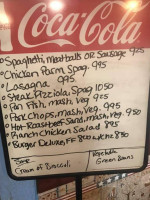 Coca-Cola
Spaghetti, Meatballs OR Sausage 925
Chicken Parm Spag. 995
Lasagna 995
Steak Pizziola Spag 1050
Pan Fish, Mash, Veg 925
Pork Chops, Mash, Veg. 995
Hot Roast Beef Sand, Mash, Veg. 950
Ranch Chicken Salad 895
Burger Deluxe, FF 800 w/che 850
Soup
Cream of Broccoli
Vegetable
Green Beans